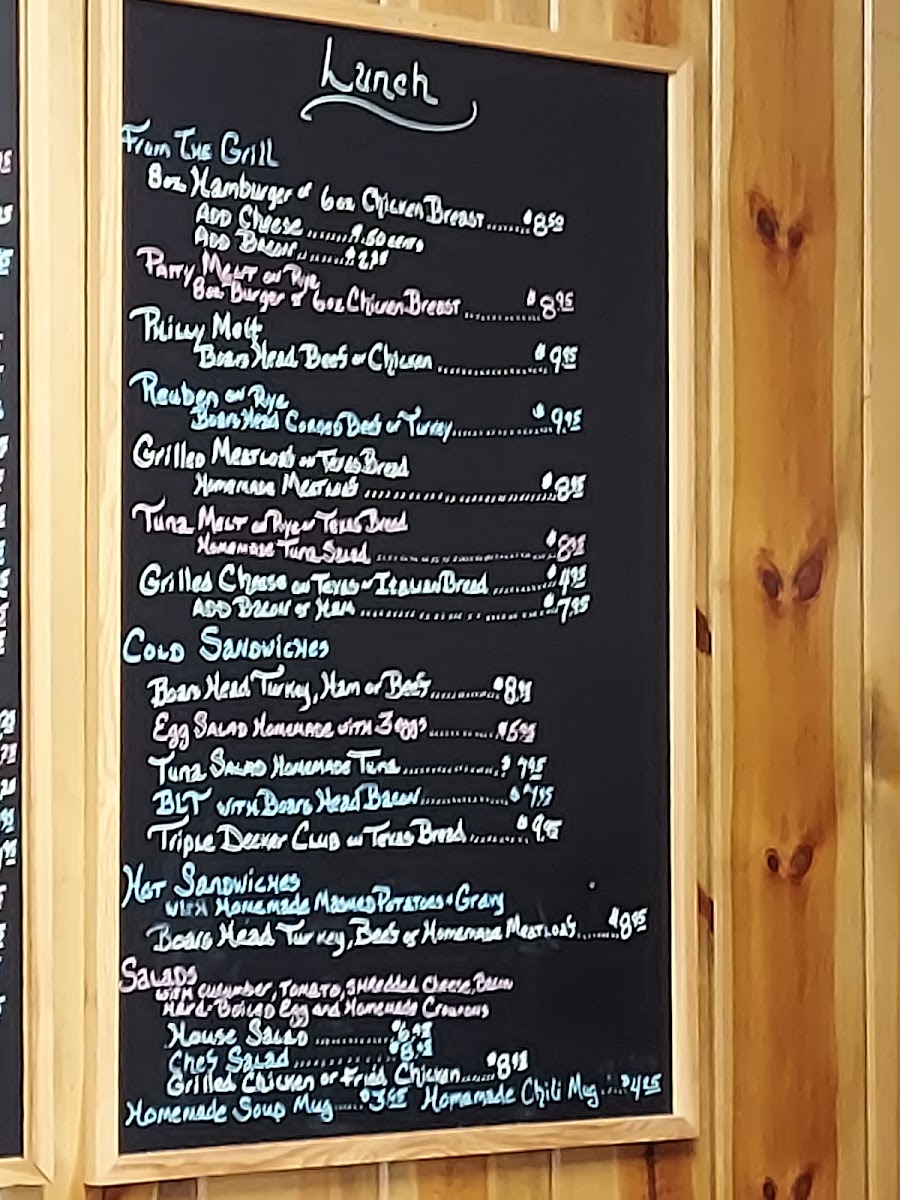 Lunch
From The Grill
8oz Hamburger or 6oz Chicken Breast ........ $8.50
Add Cheese ........ $.50 cents
Add Bacon ........
Patty Melt on Rye
8oz Burger or 6oz Chicken Breast ............. $8.95
Philly Melt
Boars Head Beef or Chicken ................ $9.95
Reuben on Rye
Boars Head Corned Beef or Turkey ............... $9.95
Grilled Meatloaf on Texas Bread
Homemade Meatloaf ............................. $8.95
Tuna Melt on Rye or Texas Bread
Homemade Tuna Salad ............................ $8.95
Grilled Cheese on Texas or Italian Bread .......... $4.95
Add Bacon or Ham ............................. $7.95
Cold Sandwiches
Boars Head Turkey, Ham or Beef ........... $8.95
Egg Salad Homemade with 3 eggs ........... $6.95
Tuna Salad Homemade Tuna ................ $7.95
BLT with Boars Head Bacon .............. $7.95
Triple Decker Club on Texas Bread ......... $9.95
Hot Sandwiches
with Homemade Mashed Potatoes & Gravy
Boars Head Turkey, Beef or Homemade Meatloaf ....... $8.95
Salads
with cucumber, tomato, shredded cheese, Bacon
Hard-Boiled Egg and Homemade Croutons
House Salad ............ $6.95
Chef Salad ............. $8.95
Grilled Chicken or Fried Chicken ....... $8.95
Homemade Soup Mug ..... $3.95 Homamade Chili Mug .... $4.95